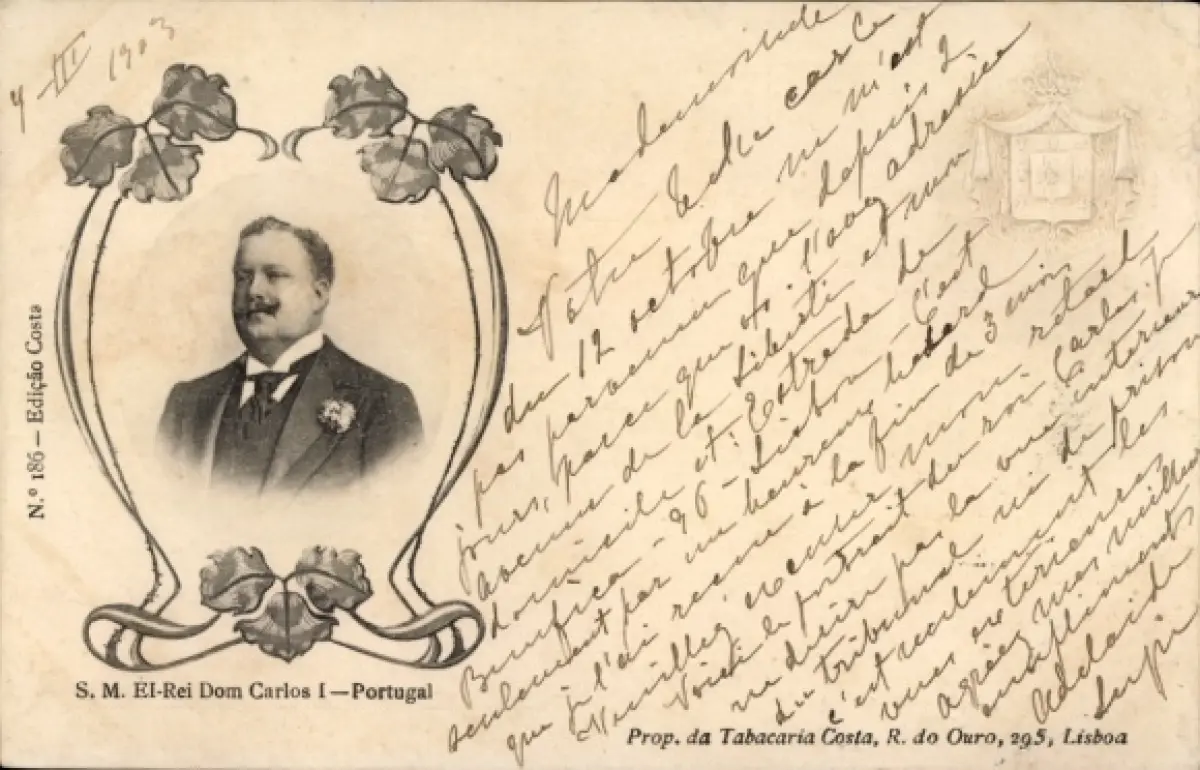 4 III 1903
N.º 186 — Edição Costa
S. M. El-Rei Dom Carlos I — Portugal
Mademoiselle
Votre belle carte
du 12 octobre ne m'est
pas parvenue que depuis 2
jours, parce que vous l'avez adressée
Avenue de la Liberté et mon
domicile est: Estrada de
Bemfica - 96 - Lisbon. C'est
seulement par un heureux hasard
que je l'ai reçue à la fin de 3 mois
Veuillez excuser mon retard
Voici le portrait du roi Carlos, je
ne désire pas la vue intérieure
du tribunal ni de prison
c'est seulement les
vues extérieures
agréez mes meilleurs
compliments
Adelaide
Prop. da Tabacaria Costa, R. do Ouro, 295, Lisboa